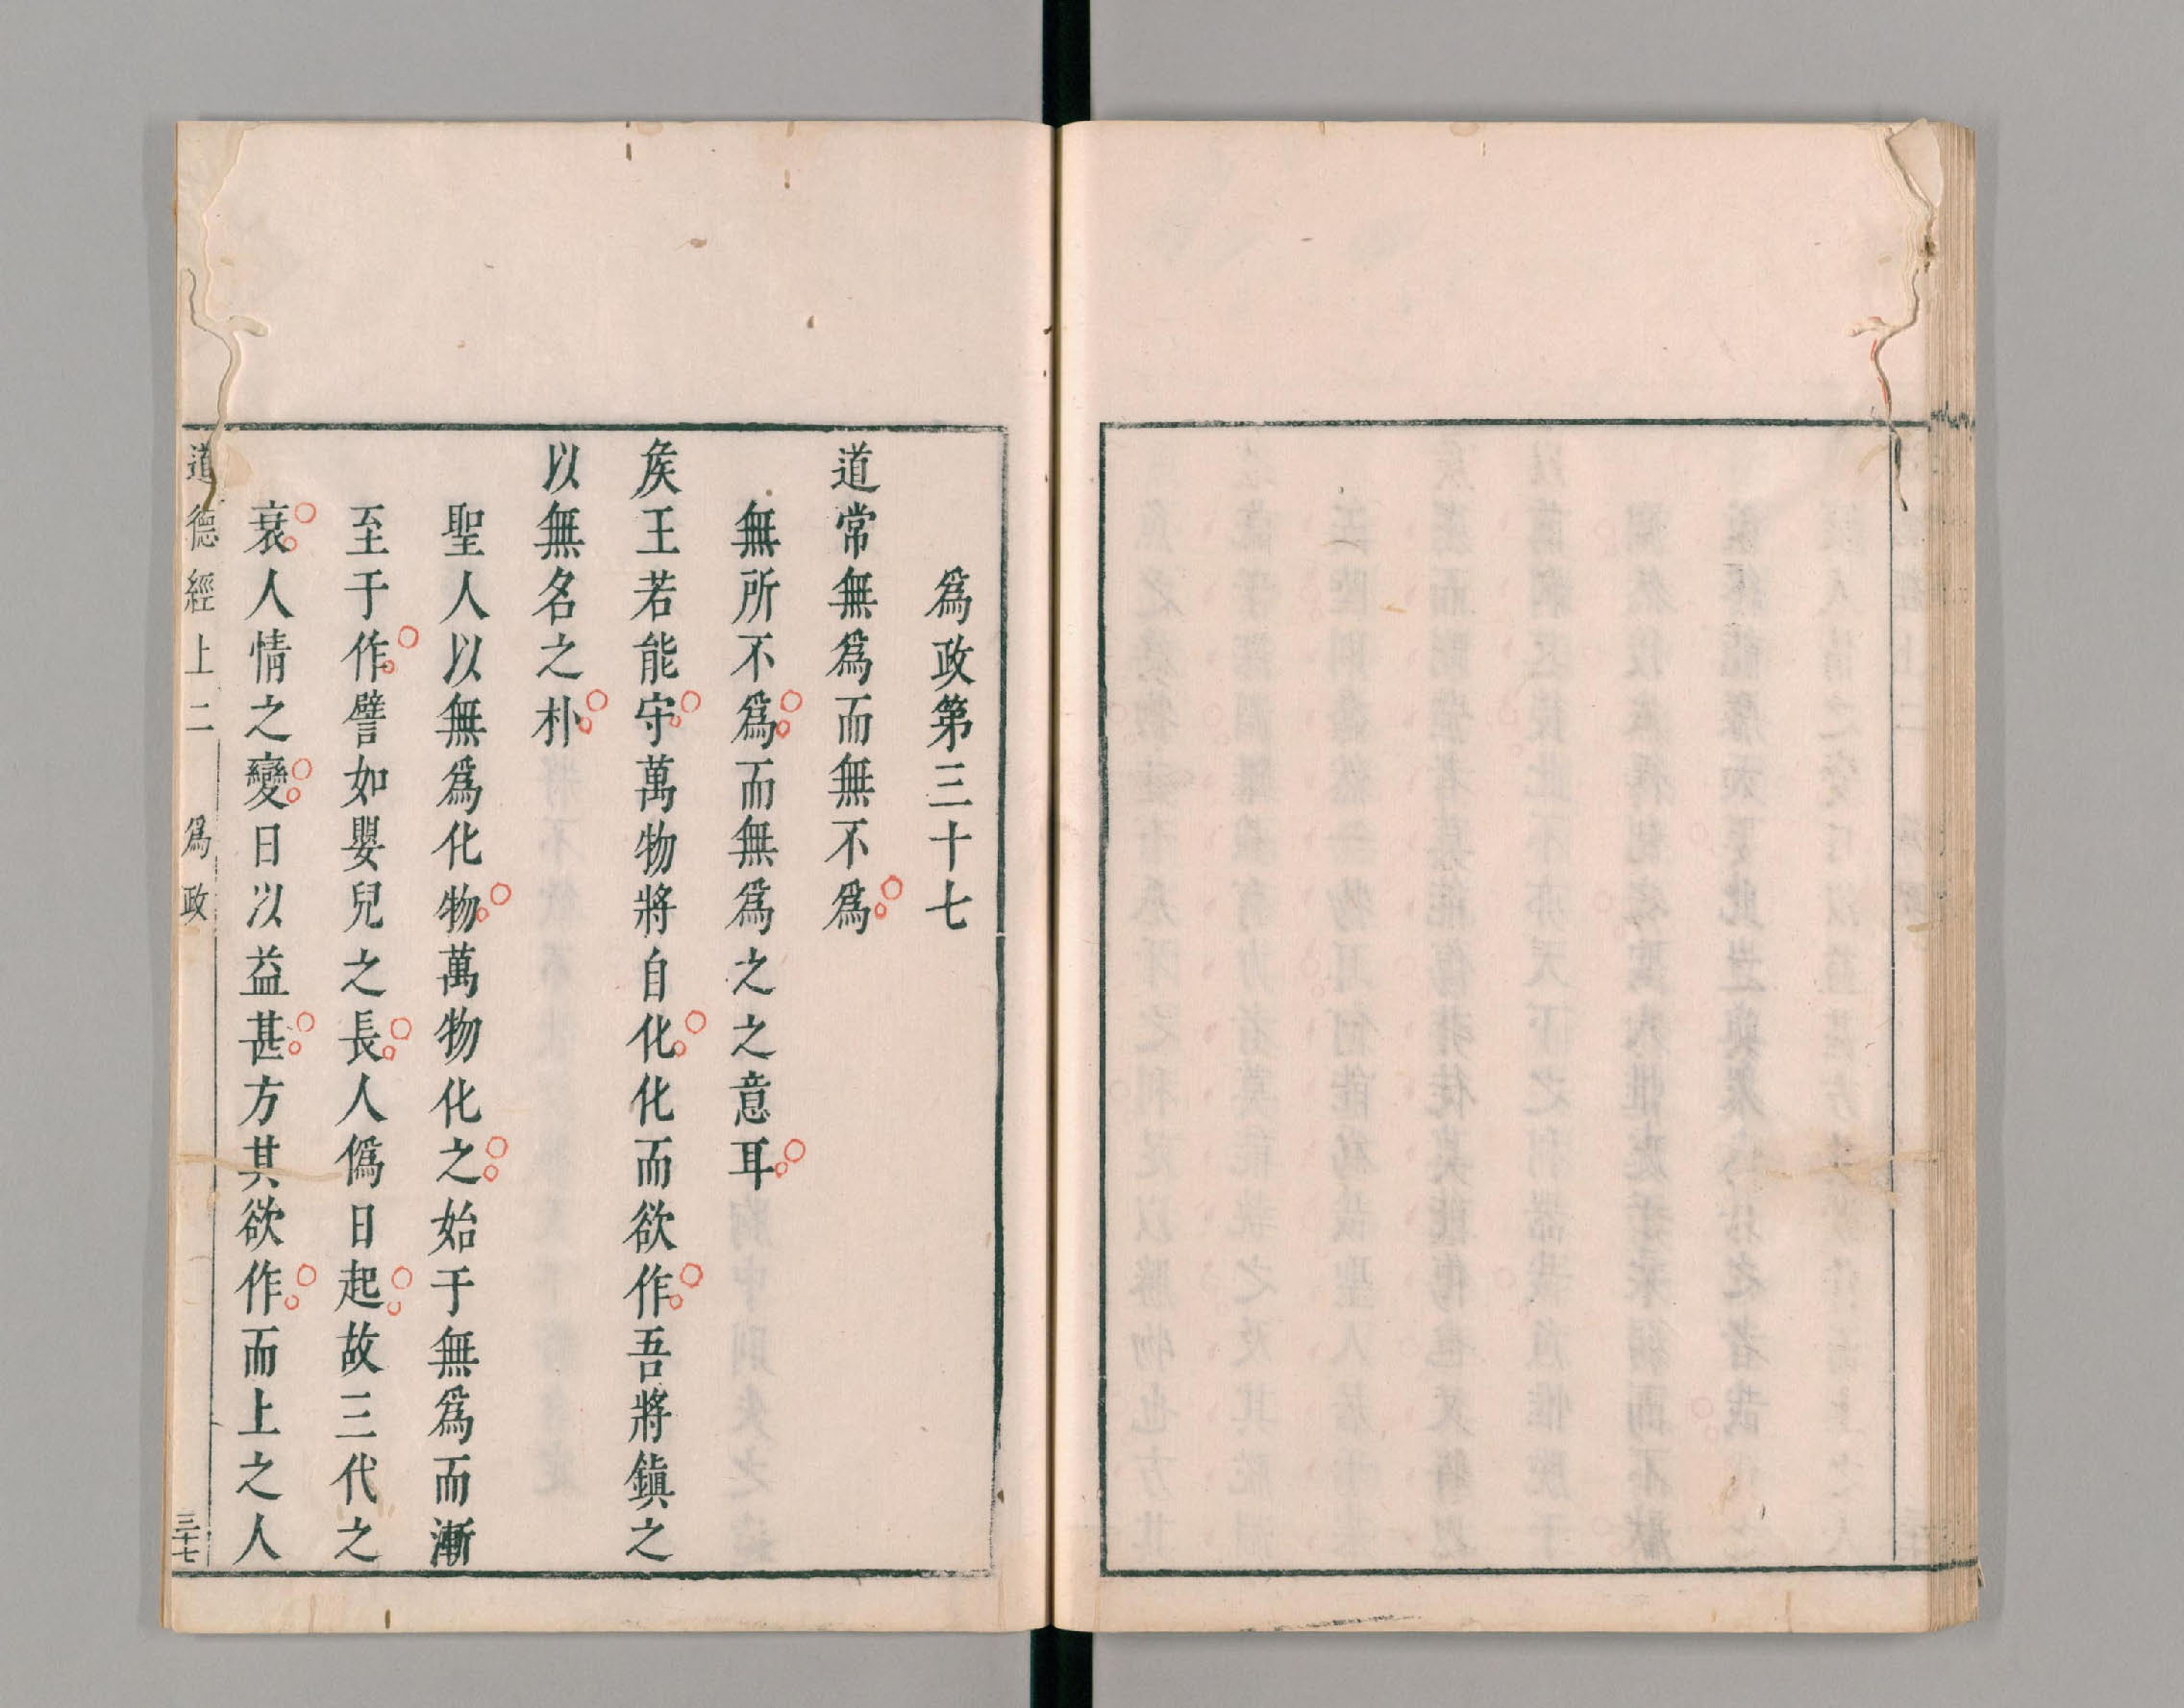 爲政第三十七
道常無爲而無不爲
無所不爲而無爲之之意耳
矦王若能守萬物將自化化而欲作吾將鎮之
以無名之朴
聖人以無爲化物萬物化之始于無爲而漸
至于作譬如嬰兒之長人僞日起故三代之
衰人情之變日以益甚方其欲作而上之人
道德經上二 爲政 三十七